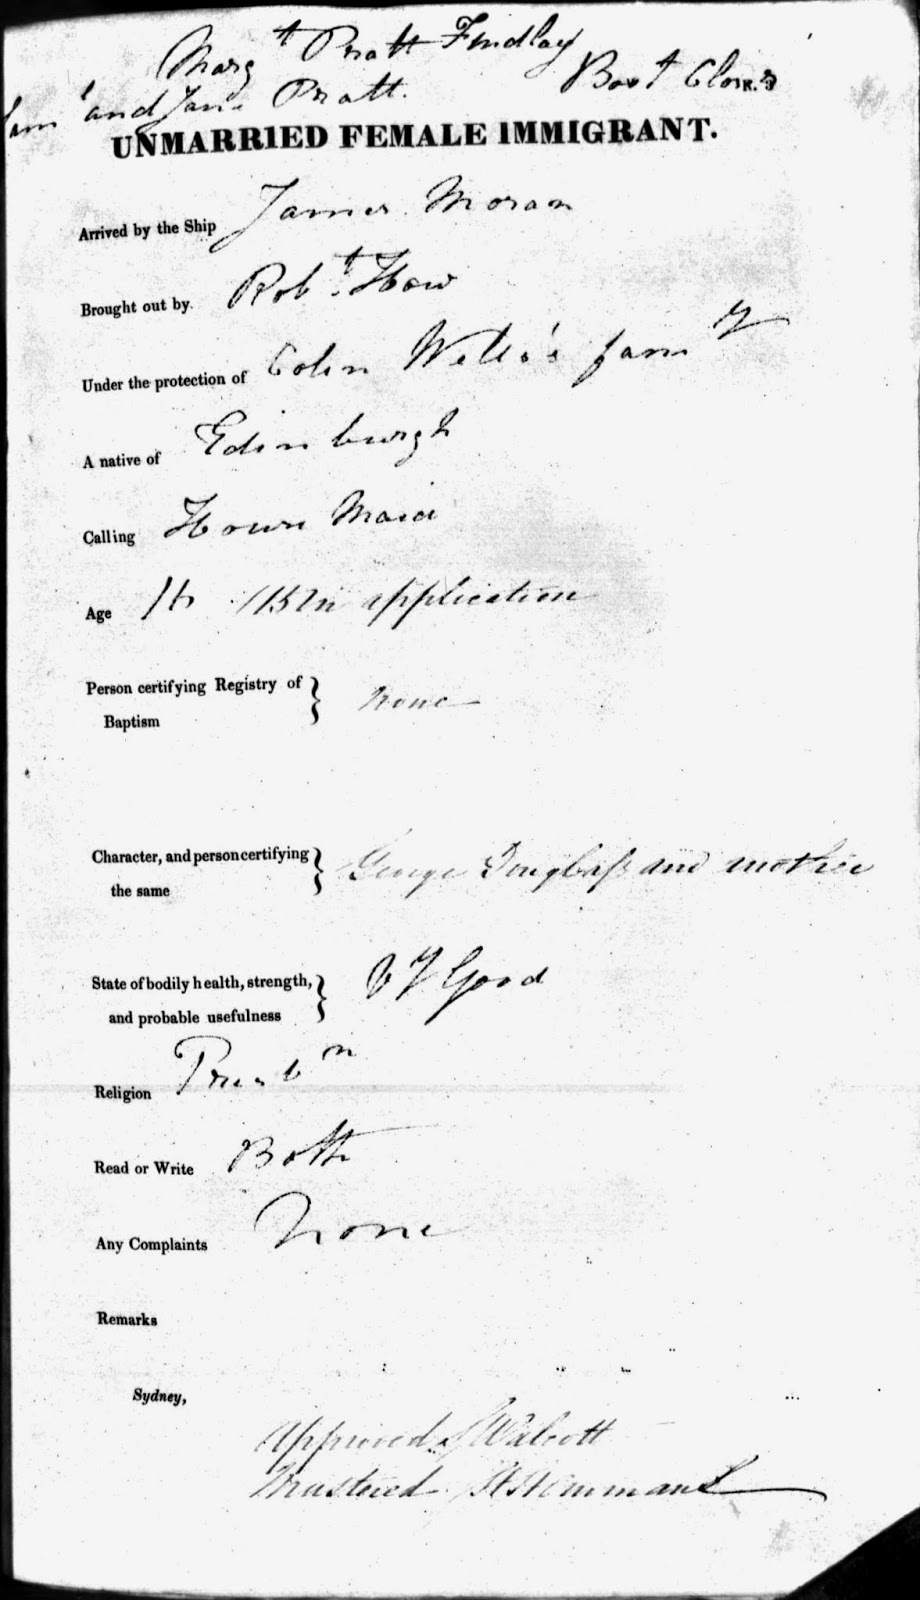 Marg t Pratt Findlay
and Jane Pratt. Boot Clos.
UNMARRIED FEMALE IMMIGRANT.
Arrived by the Ship James Moran
Brought out by Robt. How
Under the protection of Colin Wells's famy
A native of Edinburgh
Calling House Maid
Age application
Person certifying Registry of
Baptism } None
Character, and person certifying
the same } George Douglass and mother
State of bodily health, strength,
and probable usefulness } Vy Good
Religion Presbn
Read or Write Both
Any Complaints None
Remarks
Sydney,
Approved S Walcott
Mustered